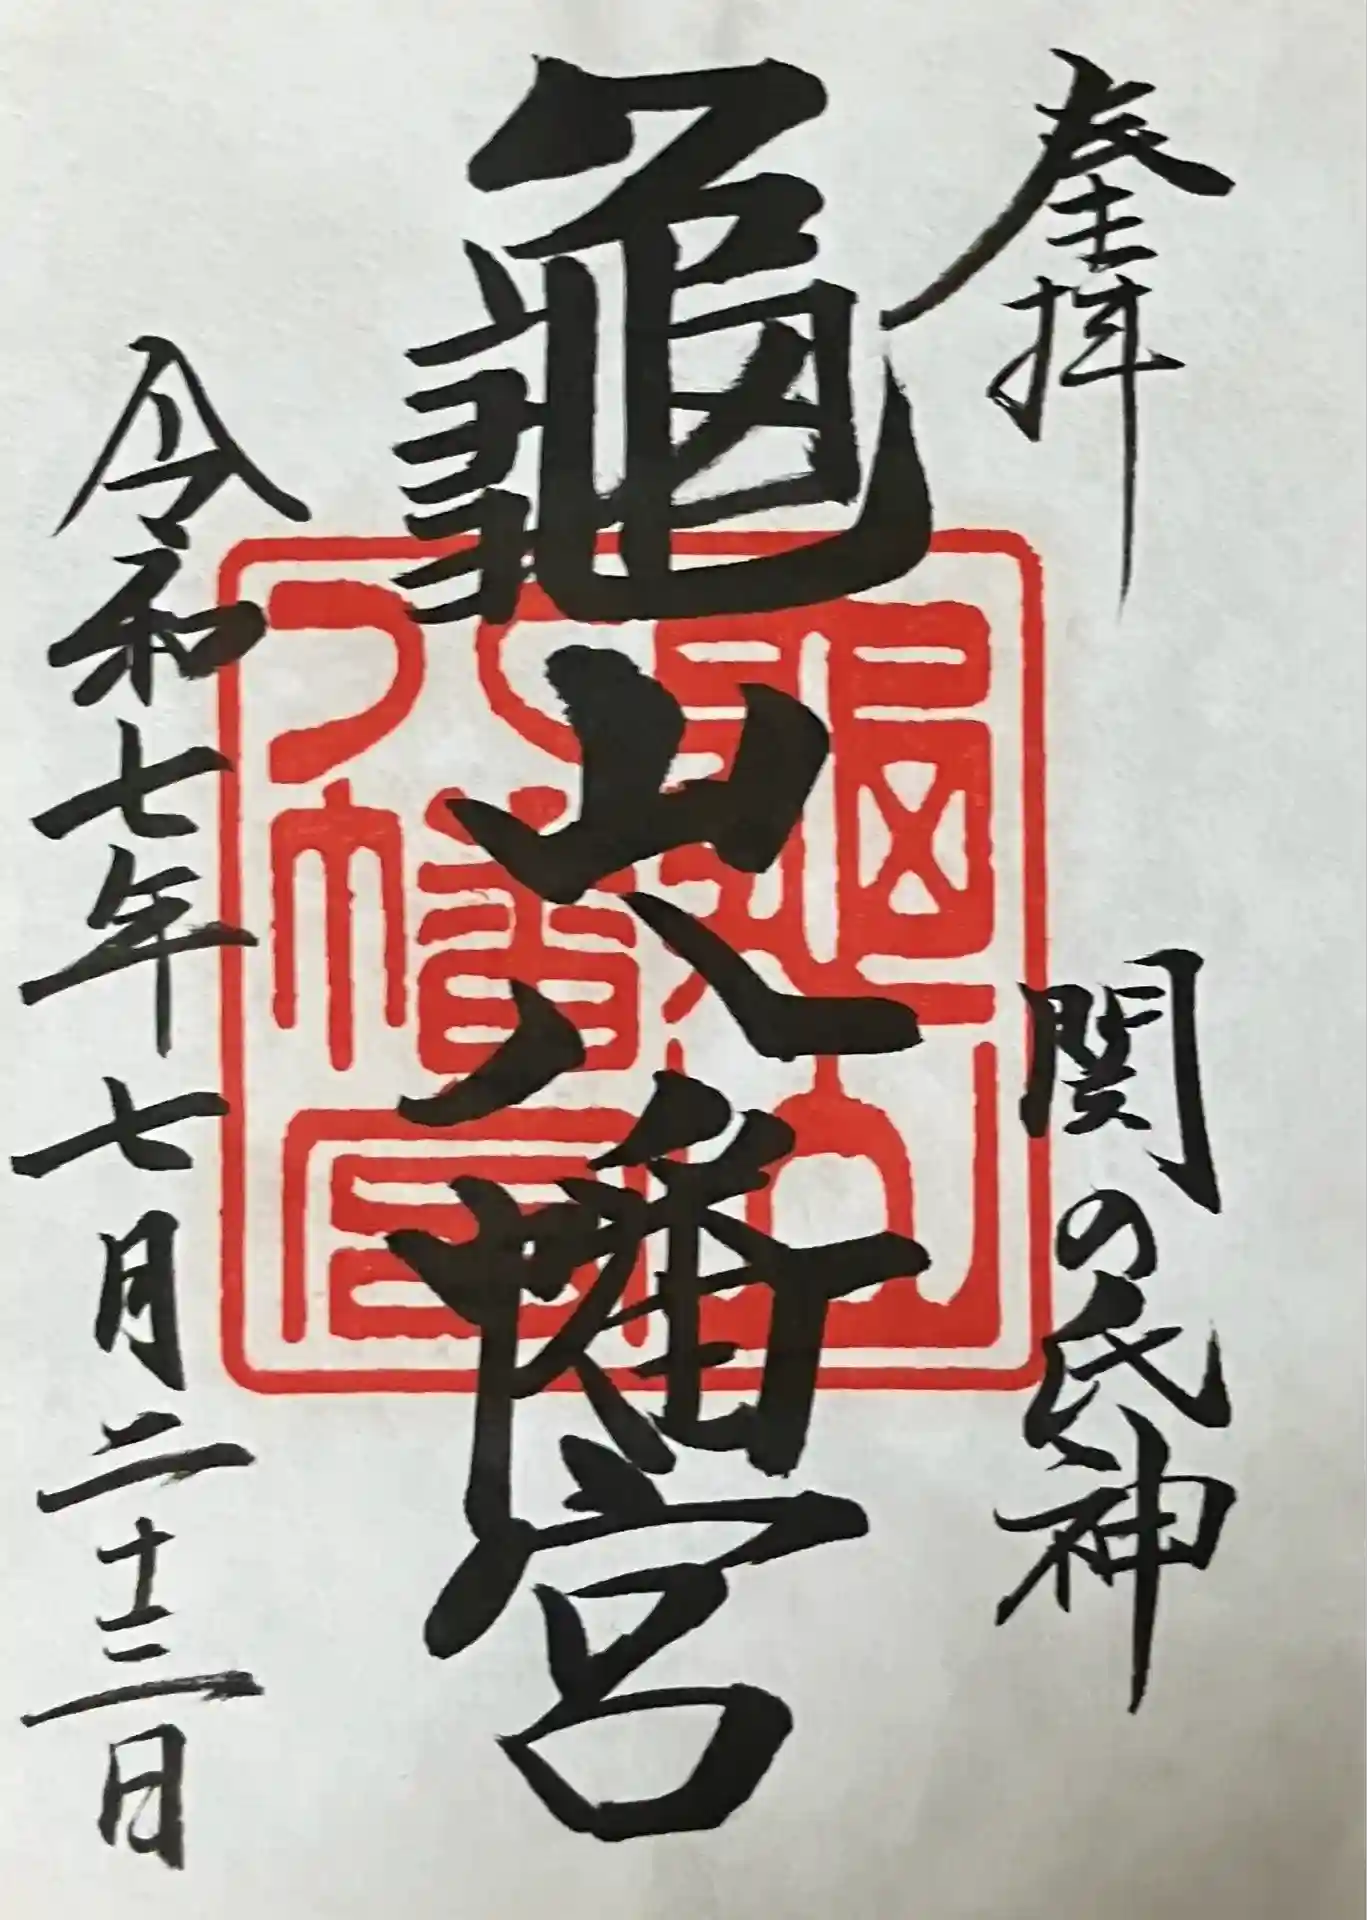 奉拝
関の氏神
龜山八幡宮
令和七年七月二十三日
龜山八幡宮